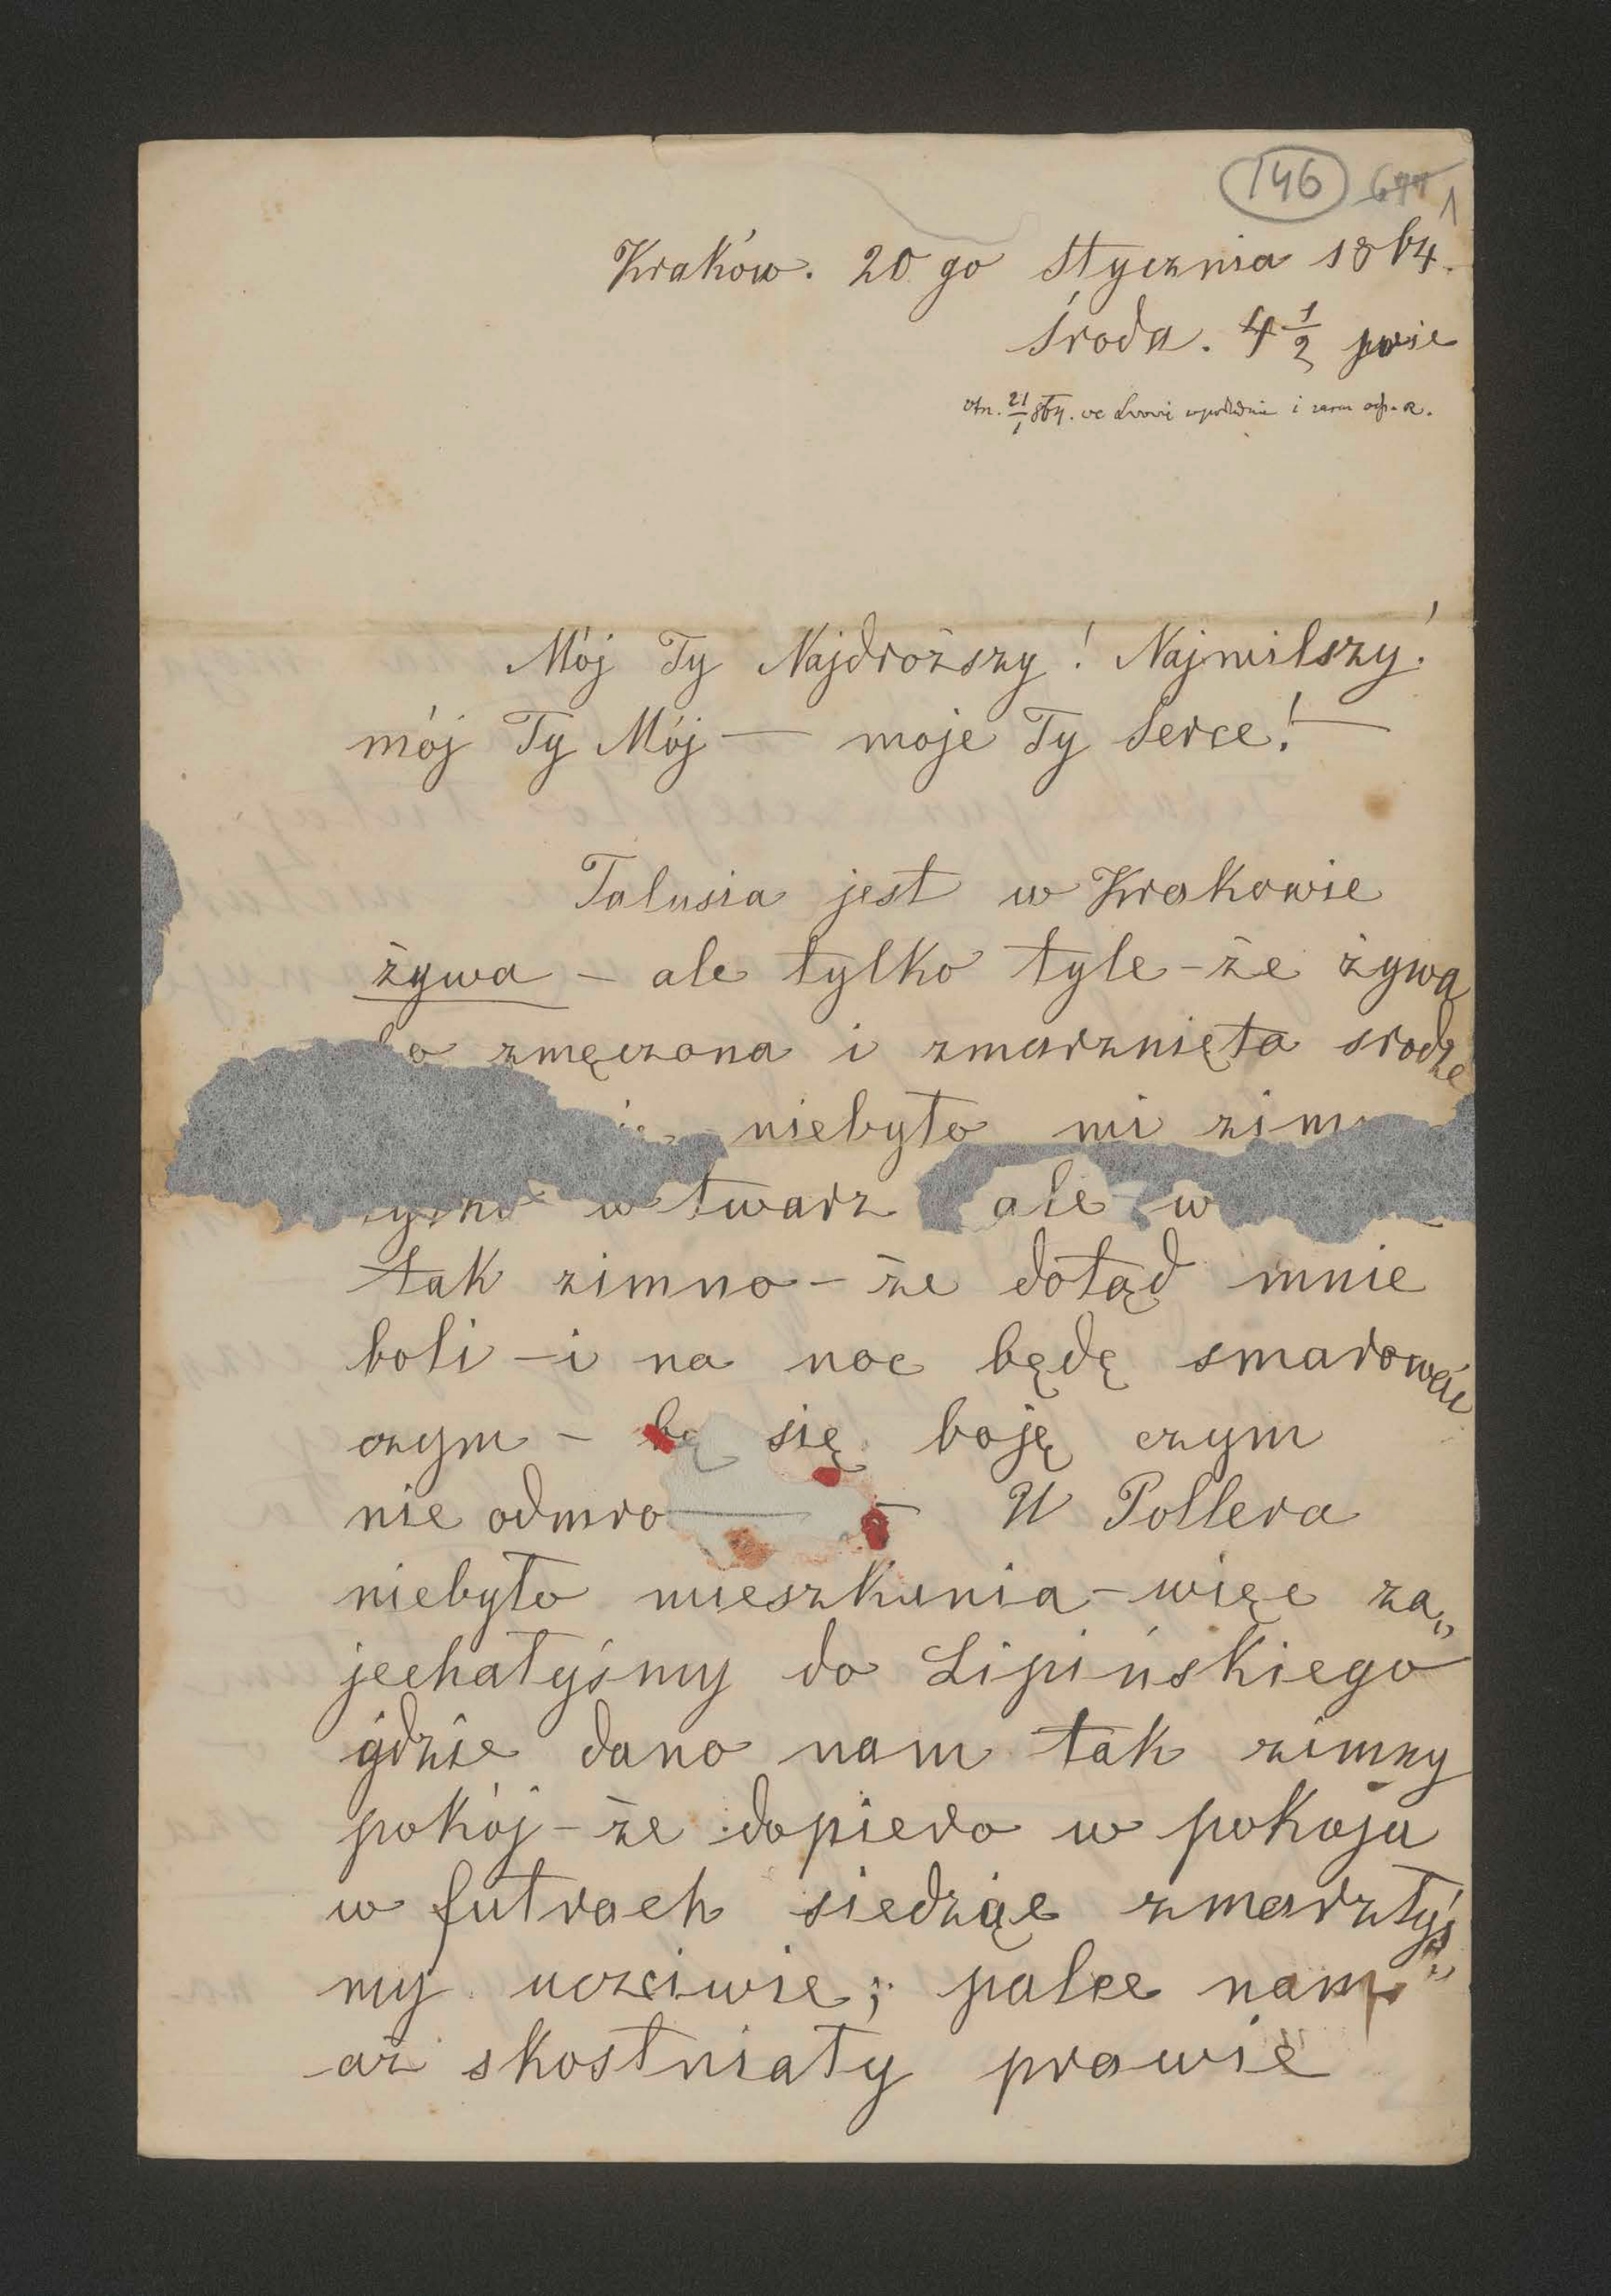 146 1
Kraków. 20 go Stycznia 1864.
Środa. 4 1/2 
otr. 21/1 864. we Lwowie i zaraz odp. R.
Mój Ty Najdroższy! Najmilszy!
mój Ty Mój — moje Ty Serce! —
Talusia jest w Krakowie
żywa – ale tylko tyle – że żywa
zmęczona i zmarznięta srodze
niebyło mi
w twarz ale w
tak zimno – że dotąd mnie
boli – i na noc będę smarować
czym – bo się boję czym
nie odmro — – U Pollera
niebyło mieszkania – więc za„
jechałyśmy do Lipińskiego
gdzie dano nam tak zimny
pokój – że dopiero w pokoju
w futrach siedząc zmarzłyś„
my uczciwie; palce nam
aż skostniały prawie